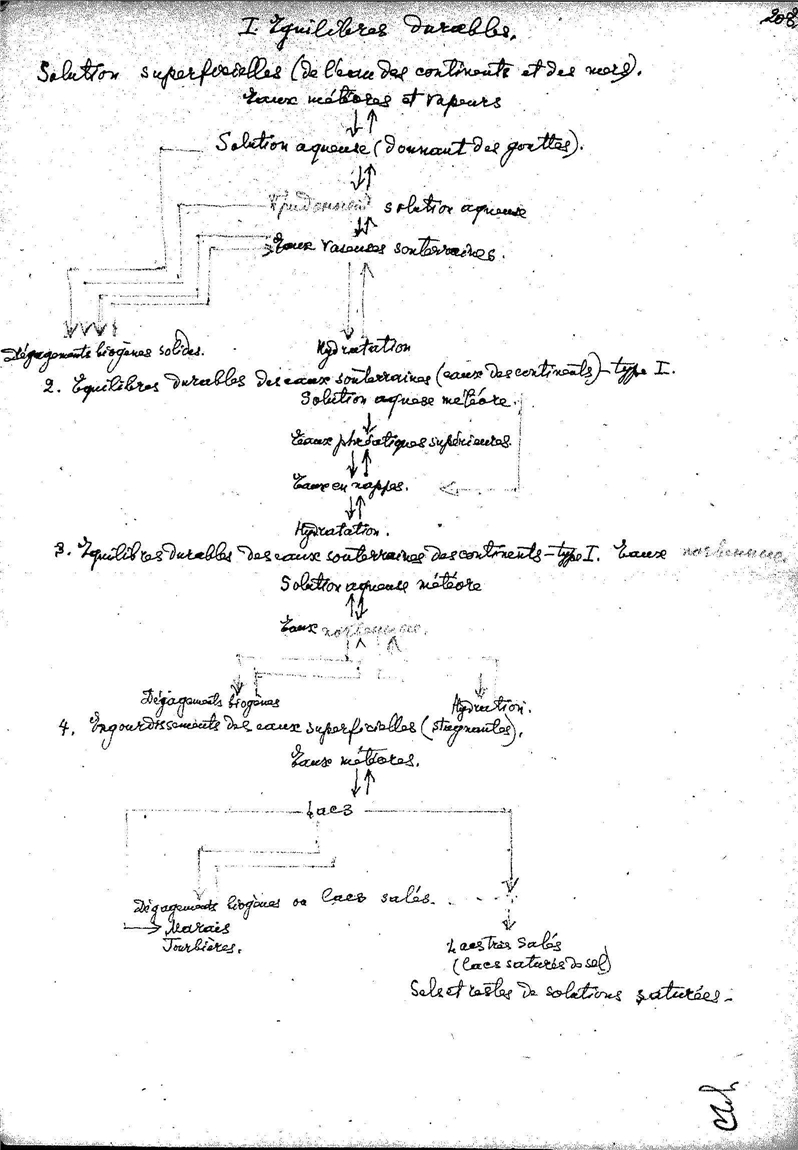 208
I. Equilibres durables.
Solution superficielles (de l'eau des continents et des mers).
Eaux météores et vapeurs
Solution aqueuse (donnant des gouttes).
solution aqueuse
Eaux vaseuses souterraines.
Dégagements biogènes solides.
Hydratation
2. Equilibres durables des eaux souterraines (eaux des continents) - type I.
Solution aquese météore.
Eaux phréatiques supérieures.
Eaux en nappes.
Hydratation.
3. Equilibres durables des eaux souterraines des continents - type I. Eaux
Solution aqueuse météore
Eaux
Dégagements biogènes
Hydration.
4. Engourdissements des eaux superficielles (stagnantes).
Eaux météores.
Lacs
Dégagements biogènes ou lacs salés.
Marais
Tourbières.
Lacs très salés
(lacs saturés de sel)
Sels et restes de solutions saturées -